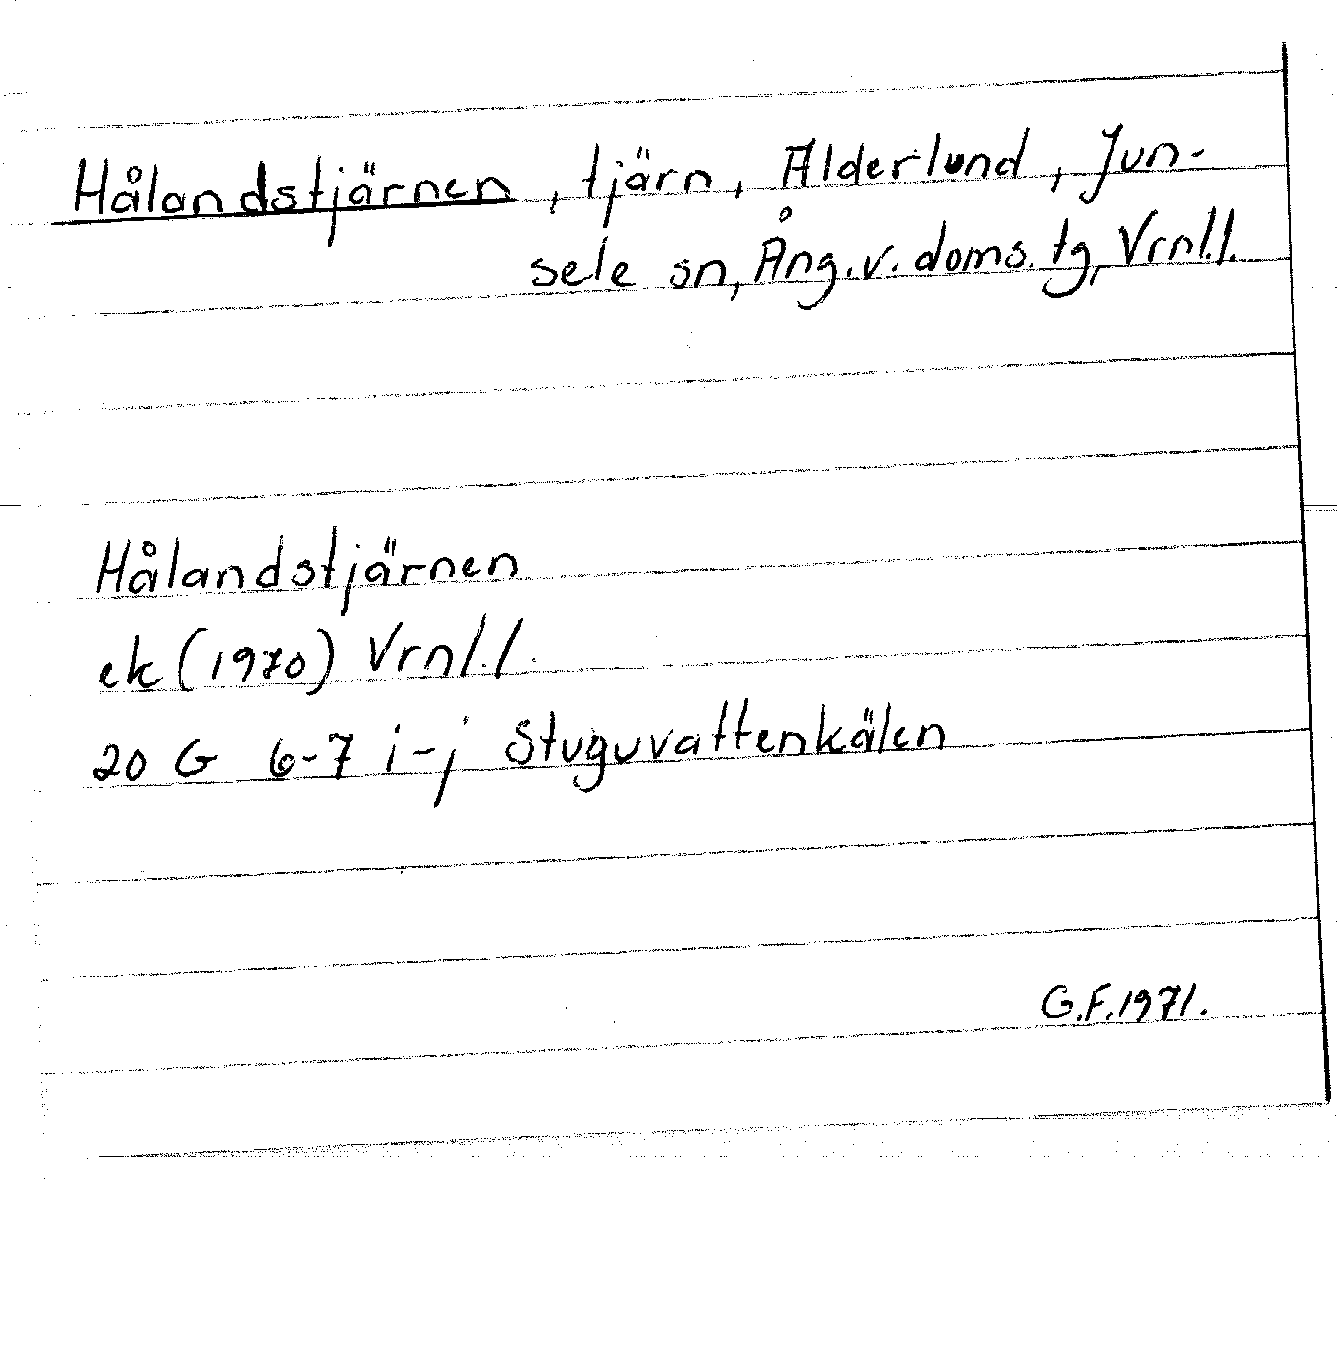 Hålandstjärnen, tjärn, Ålderlund, Jun-
sele sn, Ång.v. doms. tg, Vrnl.l.
Hålandstjärnen
ek (1970) Vrnl.l.
20 G 6-7 i-j Stuguvattenkälen
G.F. 1971.